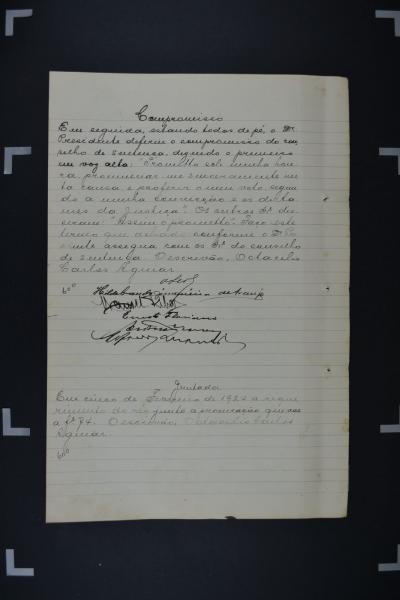 Compromisso
Em seguida, estando todos de pé, o Dr.
Presidente deferiu o compromisso do con
selho de sentença, dizendo o primeiro
em voz alta: "Prometto sob minha hon
ra pronunciar-me sinceramente nes
ta causa e proferir o meu voto segun
do a minha convicção e os dicta
mes da Justiça". Os outros Srs. dis
seram: "Assim o prometto". Faço este
termo que achado conforme o
assigna com os Srs. do conselho
de sentença. O escrivão, Octacilio
Carlos Aguiar
600
Hildebrando de Araujo
Juntada
Em cinco de Fevereiro de 1922 a reque
rimento do réo junto a procuração que vae
a fs. 94. O escrivão, Octacilio Carlos
Aguiar
600